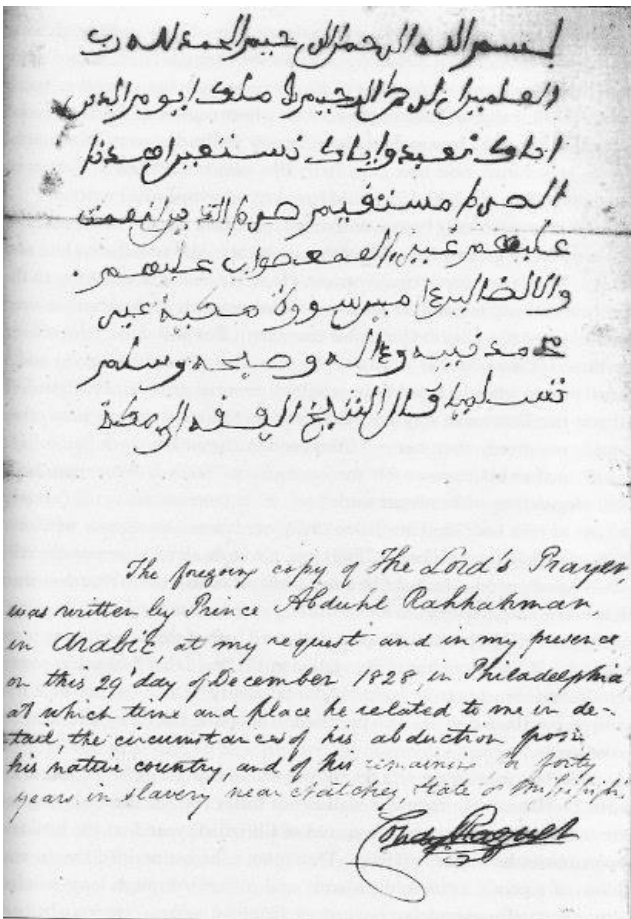 بسم الله الرحمن الرحيم الحمد لله رب
العلمين الرحمن الرحيم ملك ايوم الدين
اياك نعبد واياك نستعين اهدنا
الصرط مستقيم صرط الذين انعمت
عليهم غير المغضوب عليهم
والالضالين
محمد نبيه وءاله وصحبه وسلم
تسليما قال الشيخ
The foregoing copy of The Lord's Prayer,
was written by Prince Abduhl Rahhahman
in Arabic at my request and in my presence
on this 29 day of December 1828 in Philadelphia
at which time and place he related to me in de-
tail, the circumstances of his abduction from
his native country, and of his remaining for forty
years in slavery near Natchez State of Mississippi.